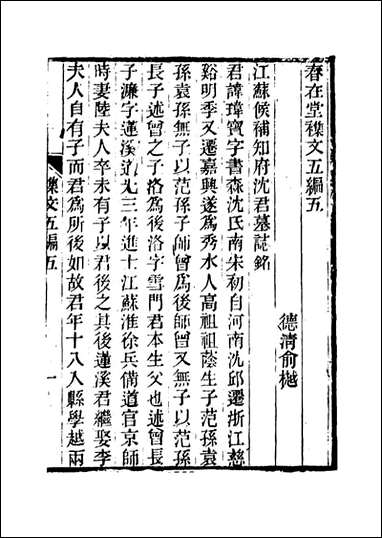 春在堂襍文五編五
德清俞樾
江蘇候補知府沈君墓誌銘
君諱瑋寶字書森沈氏南宋初自河南沈邱遷浙江慈
谿明季又遷嘉興遂爲秀水人高祖祖蔭生子范孫袁
孫袁孫無子以范孫子師曾爲後師曾又無子以范孫
長子述曾之子洛爲後洛字雪門君本生父也述曾長
子濂字蓮溪道光三年進士江蘇淮徐兵備道官京師
時妻陸夫人卒未有子以君後之其後蓮溪君繼娶李
夫人自有子而君爲所後如故君年十八入縣學越兩
襍文五編五
一